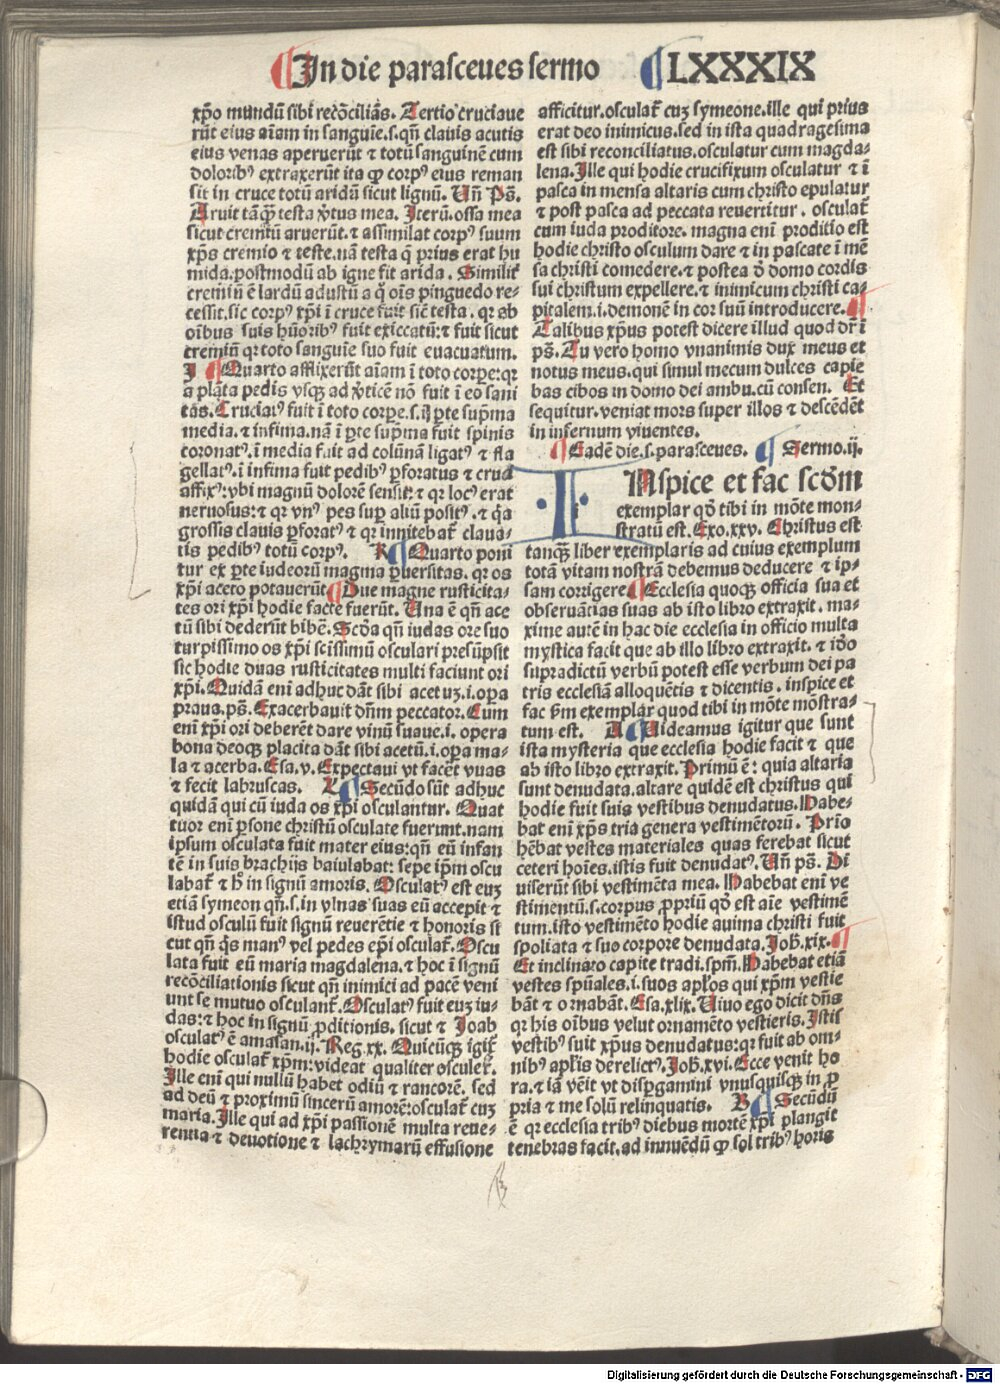 In die parasceues sermo LXXXIX
xp̄o mundū sibi recōciliās. Tertio cruciaue
rūt eius aīam in sanguīe.s.qn̄ clauis acutis
eius venas aperuerūt ⁊ totū sanguinē cum
doloribꝰ extraxerūt ita ꝙ corpꝰ eius reman
sit in cruce totū aridū sicut lignū. Un̄ Ps̄.
Aruit tāꝙ̄ testa v̄tus mea. Iterū.ossa mea
sicut cremiū aruerūt.⁊ assimilat corpꝰ suum
xp̄s cremio ⁊ teste.nā testa q̄ prius erat hu
mida.postmodū ab igne fit arida. Similit̄
cremiū ē lardū adustū a q̄ oīs pinguedo re-
cessit.sic corpꝰ xp̄i ī cruce fuit sic̄ testa. qr ab
oībus suis hūoribꝰ fuit exiccatū:⁊ fuit sicut
cremiū qr toto sanguīe suo fuit euacuatum.
I Quarto afflixerūt aīam ī toto corpe:qr
a plāta pedis vsqꝫ ad v̄ticē nō fuit ī eo sani
tas. Cruciatꝰ fuit ī toto corpe.s.ī ꝑte sup̄ma
media.⁊ infima.nā ī ꝑte sup̄ma fuit spinis
coronatꝰ.ī media fuit ad colūnā ligatꝰ ⁊ fla
gellatꝰ.ī infima fuit pedibꝰ ꝑforatus ⁊ cruci
affixꝰ:vbi magnū dolorē sensit:⁊ qr locꝰ erat
neruosus:⁊ qr vnꝰ pes sup aliū positꝰ.⁊ q̄a
grossis clauis ꝑforatꝰ ⁊ qr innitebat̄ claua-
tis pedibꝰ totū corpꝰ. K Quarto poni
tur ex ꝑte iudeorū magma ꝑuersitas. qr os
xp̄i aceto potauerūt Due magne rusticita-
tes ori xp̄i hodie facte fuerūt. Una ē qn̄ ace
tū sibi dederūt bibē. Scd̄a qn̄ iudas ore suo
turpissimo os xp̄i scissimū osculari presūpsit
sic hodie duas rusticitates multi faciunt ori
xp̄i. Quidā eni adhuc dāt sibi acetuꝫ.i.opa
praua.ps̄. Exacerbauit dn̄m peccator. Cum
eni xp̄i ori deberēt dare vinū suaue.i. opera
bona deoqꝫ placita dāt sibi acetū.i.opa ma-
la ⁊ acerba. Esa.v. Expectaui vt facēt vuas
⁊ fecit labruscas. L Secūdo sūt adhuc
quidā qui cū iuda os xp̄i osculantur. Quat
tuor eni ꝑsone christū osculate fuerunt.nam
ipsum osculata fuit mater eius:qn̄ eū infan
tē in suis brachijs baiulabat: sepe ip̄m oscu
labat̄ ⁊ h̄ in signū amoris. Osculatꝰ est euꝫ
etiā symeon qn̄.s.in vlnas suas eū accepit ⁊
istud osculū fuit signū reuerētie ⁊ honoris si
cut qn̄ q̄s manꝰ vel pedes ep̄i osculat̄. Oscu
lata fuit eū maria magdalena.⁊ hoc ī signū
recōciliationis sicut qn̄ inimici ad pacē veni
unt se mutuo osculant̄. Osculatꝰ fuit euꝫ iu-
das:⁊ hoc in signū ꝓditionis, sicut ⁊ Ioab
osculatꝰ ē amasan.ij. Reg.xx. Quicūqꝫ igit̄
hodie osculat̄ xp̄m:videat qualiter osculet̄.
Ille eni qui nullū habet odiū ⁊ rancorē. sed
ad deū ⁊ proximū sincerū amorē:osculat̄ cuꝫ
maria. Ille qui ad xp̄i passionē multa reue-
rentia ⁊ deuotione ⁊ lachrymarū effusione
afficitur.osculat̄ cuꝫ symeone.ille qui prius
erat deo inimicus.sed in ista quadragesima
est sibi reconciliatus.osculatur cum magda-
lena. Ille qui hodie crucifixum osculatur ⁊ ī
pasca in mensa altaris cum christo epulatur
⁊ post pasca ad peccata reuertitur. osculat̄
cum iuda proditore. magna eni proditio est
hodie christo osculum dare ⁊ in pascate ī mē
sa christi comedere.⁊ postea d̄ domo cordis
sui christum expellere.⁊ inimicum christi ca-
pitalem.i.demonē in cor suū introducere.
Talibus xp̄us potest dicere illud quod dr̄ ī
ps̄. Tu vero homo vnanimis dux meus et
notus meus.qui simul mecum dulces capie
bas cibos in domo dei ambu.cū consen. Et
sequitur.veniat mors super illos ⁊ descēdēt
in infernum viuentes.
Eadē die.s.parasceues. Sermo.ij.
INspice et fac scd̄m
exemplar qd̄ tibi in mōte mon-
stratū est. Exo.xxv. Christus est
tanqꝫ liber exemplaris ad cuius exemplum
totā vitam nostrā debemus deducere ⁊ ip-
sam corrigere. Ecclesia quoqꝫ officia sua et
obseruātias suas ab isto libro extraxit. ma-
xime autē in hac die ecclesia in officio multa
mystica facit que ab illo libro extraxit. ⁊ iō
supradictū verbū potest esse verbum dei pa
tris ecclesiā alloquētis ⁊ dicentis. inspice et
fac sm̄ exemplar quod tibi in mōte mōstra-
tum est. A Uideamus igitur que sunt
ista mysteria que ecclesia hodie facit ⁊ que
ab isto libro extraxit. Primū ē: quia altaria
sunt denudata.altare quidē est christus qui
hodie fuit suis vestibus denudatus. Habe-
bat eni xp̄s tria genera vestimētorū. Prīo
hēbat vestes materiales quas ferebat sicut
ceteri hoīes.istis fuit denudatꝰ. Un̄ ps̄. Di
uiserūt sibi vestimēta mea. Habebat eni ve
stimentū.s.corpus ꝓpriū qd̄ est aīe vestimē
tum.isto vestimēto hodie anima christi fuit
spoliata ⁊ suo corpore denudata. Joh̄.xix.
Et inclinato capite tradi.spm̄. Habebat etiā
vestes spūales.i.suos apl̄os qui xp̄m vestie
bāt ⁊ ornabāt. Esa.xlix. Uiuo ego dicit dn̄s
qr his oībus velut ornamēto vestieris. Istis
vestibꝰ suit xp̄us denudatus:qr fuit ab om-
nibꝰ apl̄is derelictꝰ. Joh̄.xvi. Ecce venit ho
ra.⁊ iā vēit vt disꝑgamini vnusquisqꝫ in ꝓ
pria ⁊ me solū relinquatis. B Secūdū
ē qr ecclesia tribꝰ diebus mortē xp̄i plangit
tenebras facit.ad innuēdū ꝙ sol tribꝰ horis
Digitalisierung gefördert durch die Deutsche Forschungsgemeinschaft - DFG